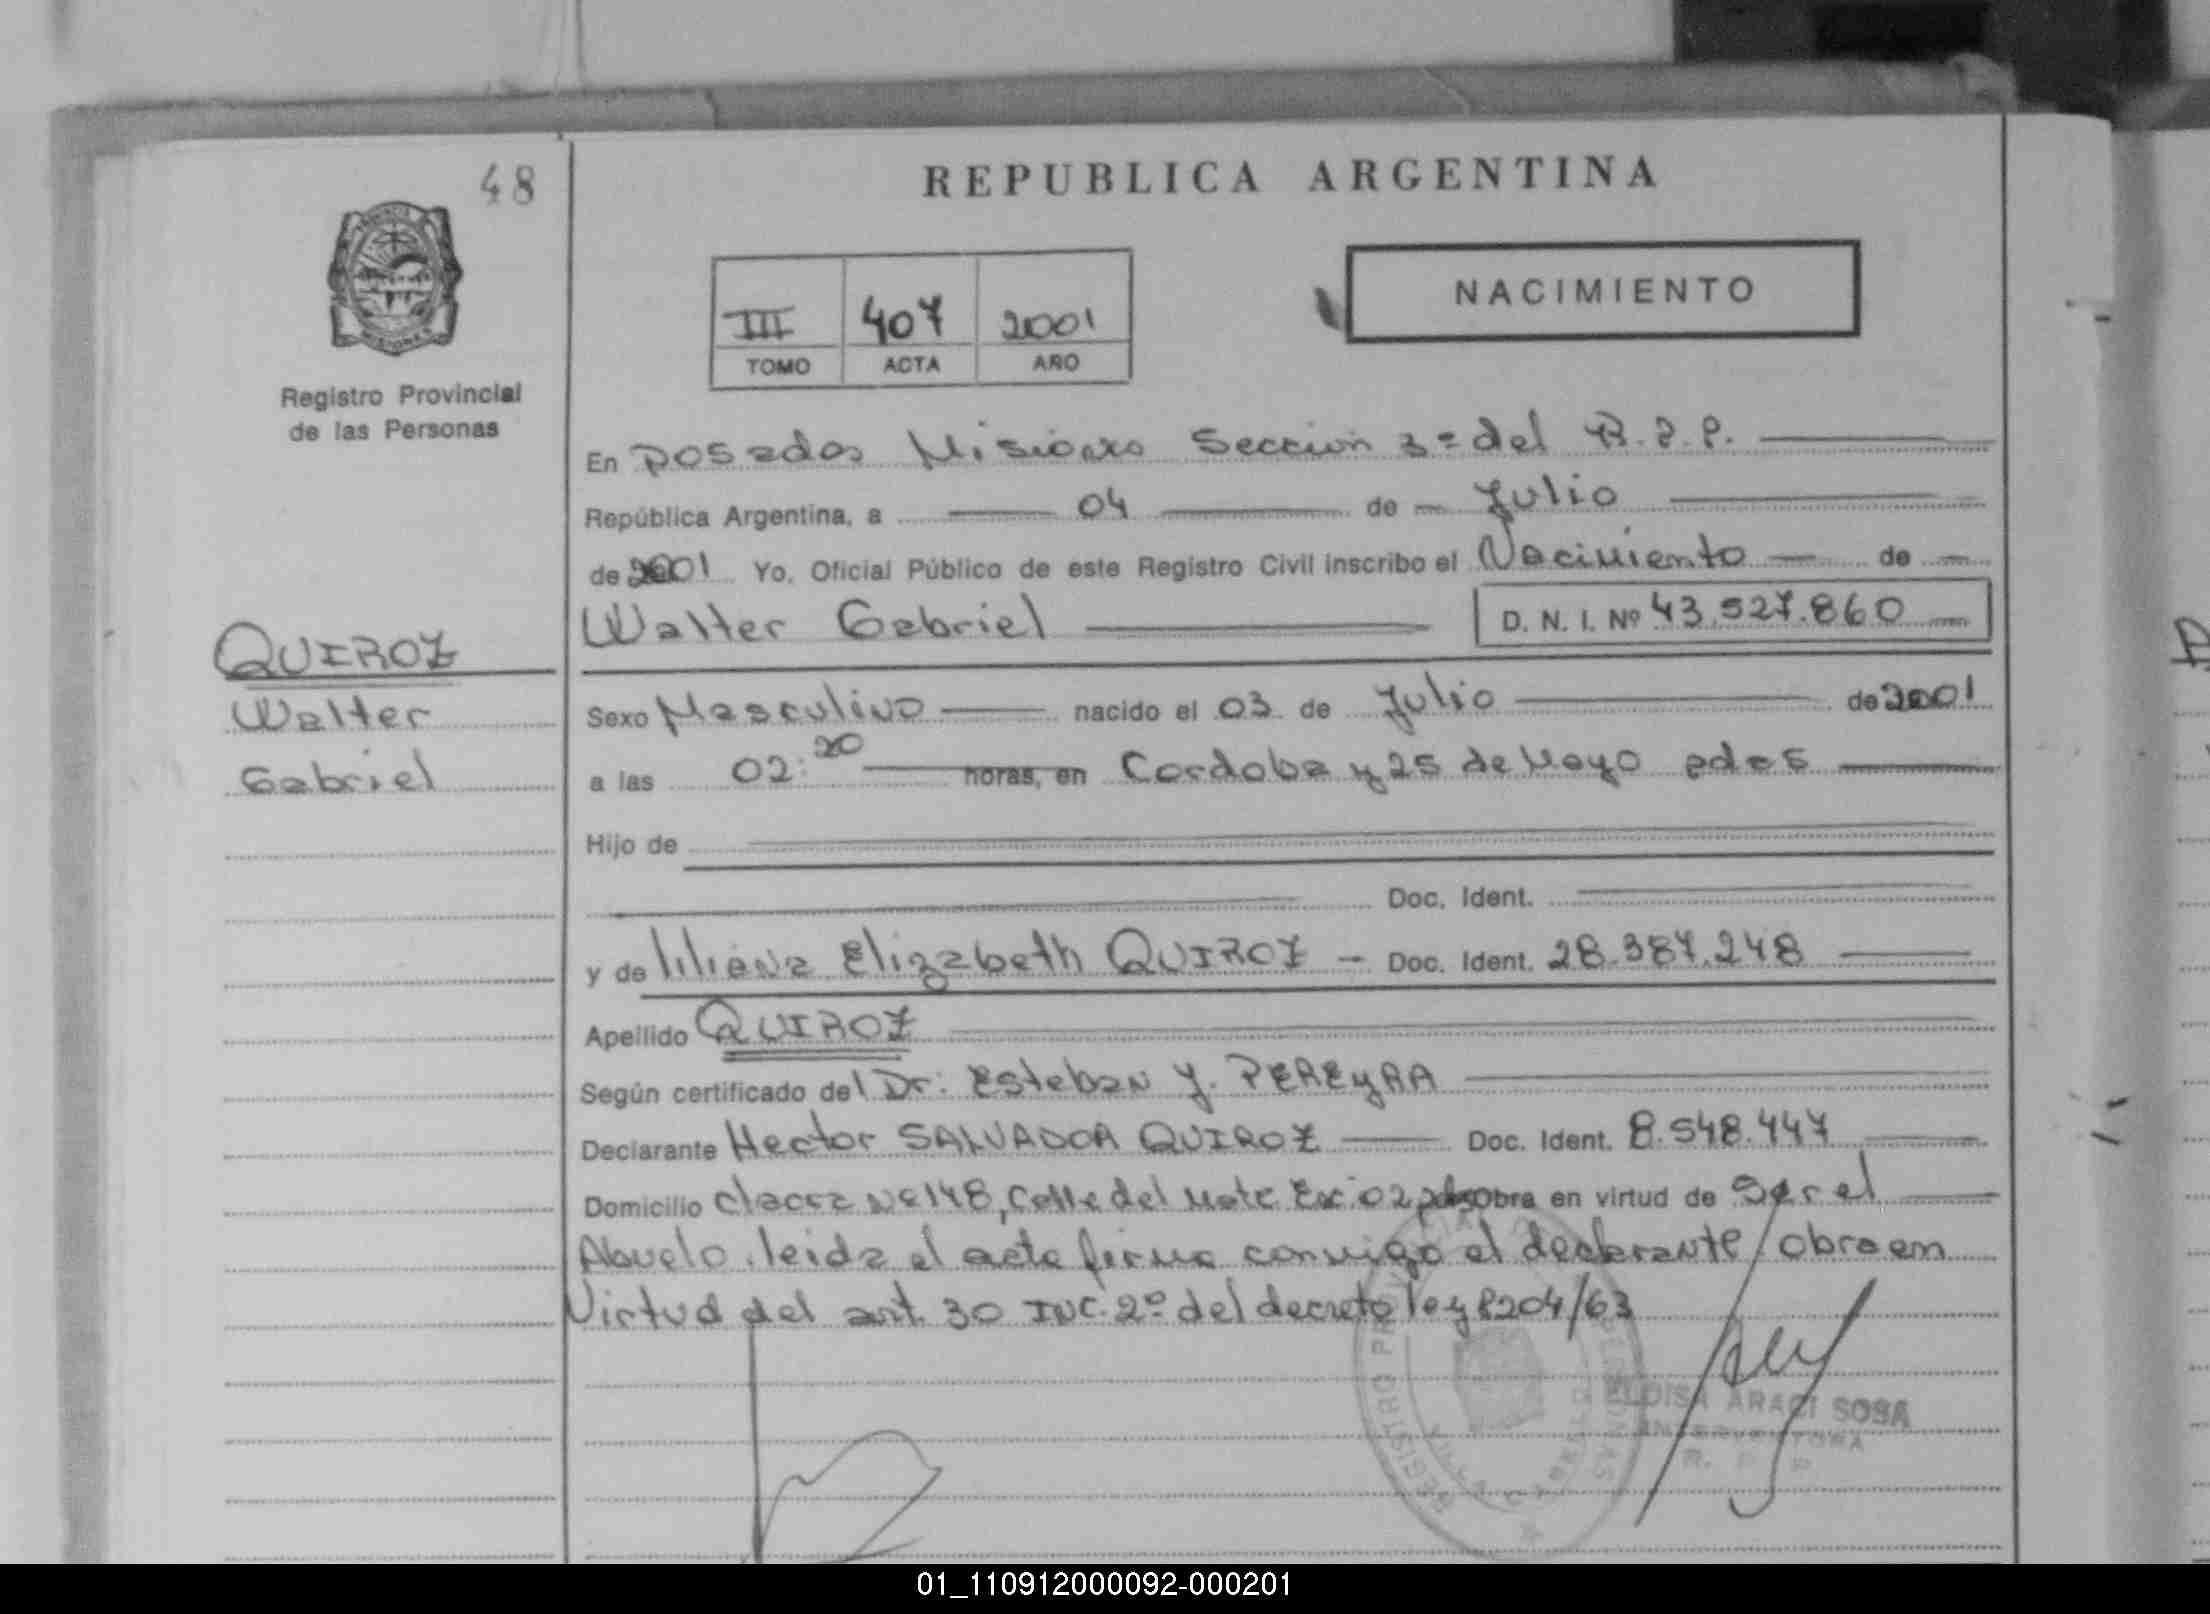 48
REPUBLICA ARGENTINA
III 407 2001
TOMO ACTA AÑO
NACIMIENTO
Registro Provincial
de las Personas
En Posadas Misiones Sección 3ª del R.P.P.
República Argentina, a 04 de Julio
de 2001 Yo, Oficial Público de este Registro Civil inscribo el Nacimiento de
Walter Gabriel D. N. I. Nº 43.527.860
QUIROZ
Walter
Gabriel
Sexo Masculino nacido el 03 de Julio de 2001
a las 02:20 horas, en Cordoba y 25 de Mayo pdas
Hijo de
Doc. Ident.
y de liliana Elizabeth QUIROZ - Doc. Ident. 28.387.248
Apellido QUIROZ
Según certificado del Dr: Esteban Y. PEREyRA
Declarante Hector SALVADOR QUIROZ Doc. Ident. 8.548.447
Domicilio chacra Nº 148, Calle del Mate obra en virtud de Ser el
Abuelo. leida el acta firma conmigo el declarante/obra en
Virtud del art. 30 INC. 2º del decreto ley 8204/63
REGISTRO PROVINCIAL PERSONAS
VILLA CABELLO
ELOISA ARACI SOSA
INTERVENTORA
R. P. P
01_110912000092-000201